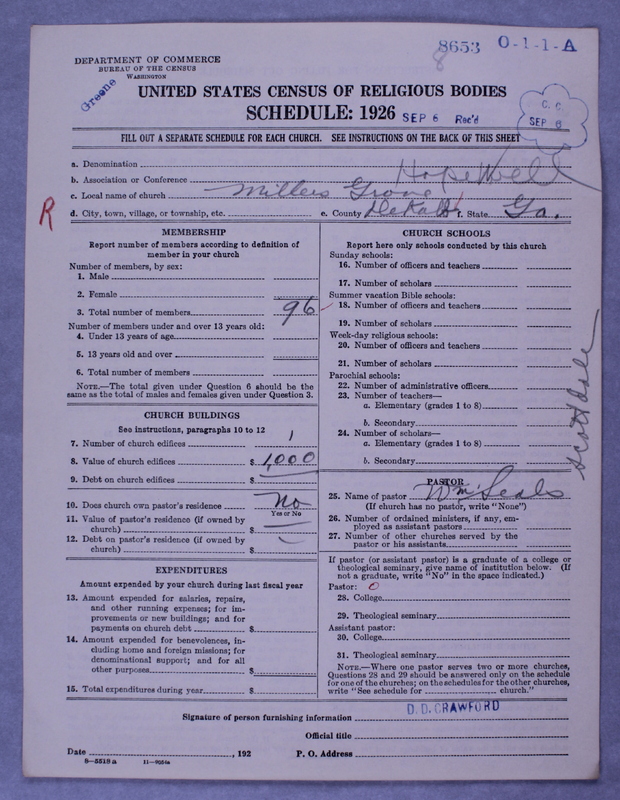 8653 0-1-1-A
8
DEPARTMENT OF COMMERCE
BUREAU OF THE CENSUS
WASHINGTON
Greene
UNITED STATES CENSUS OF RELIGIOUS BODIES
SCHEDULE: 1926 SEP 6 Rec'd
C. C.
SEP 6
FILL OUT A SEPARATE SCHEDULE FOR EACH CHURCH. SEE INSTRUCTIONS ON THE BACK OF THIS SHEET
a. Denomination
b. Association or Conference Hopewell
c. Local name of church Millers Grove
d. City, town, village, or township, etc. e. County DeKalb f. State Ga.
R
MEMBERSHIP
Report number of members according to definition of
member in your church
Number of members, by sex:
1. Male
2. Female
3. Total number of members 96
Number of members under and over 13 years old:
4. Under 13 years of age
5. 13 years old and over
6. Total number of members
NOTE.—The total given under Question 6 should be the
same as the total of males and females given under Question 3.
CHURCH BUILDINGS
See instructions, paragraphs 10 to 12
7. Number of church edifices 1
8. Value of church edifices $ 1,000
9. Debt on church edifices $
10. Does church own pastor's residence No
Yes or No
11. Value of pastor's residence (if owned by
church) $
12. Debt on pastor's residence (if owned by
church) $
EXPENDITURES
Amount expended by your church during last fiscal year
13. Amount expended for salaries, repairs,
and other running expenses; for im-
provements or new buildings; and for
payments on church debt $
14. Amount expended for benevolences, in-
cluding home and foreign missions; for
denominational support; and for all
other purposes $
15. Total expenditures during year $
CHURCH SCHOOLS
Report here only schools conducted by this church
Sunday schools:
16. Number of officers and teachers
17. Number of scholars
Summer vacation Bible schools:
18. Number of officers and teachers
19. Number of scholars
Week-day religious schools:
20. Number of officers and teachers
21. Number of scholars
Parochial schools:
22. Number of administrative officers
23. Number of teachers—
a. Elementary (grades 1 to 8)
b. Secondary
24. Number of scholars—
a. Elementary (grades 1 to 8)
b. Secondary
Scottdale
PASTOR
25. Name of pastor Wm Seals
(If church has no pastor, write "None")
26. Number of ordained ministers, if any, em-
ployed as assistant pastors
27. Number of other churches served by the
pastor or his assistants
If pastor (or assistant pastor) is a graduate of a college or
theological seminary, give name of institution below. (If
not a graduate, write "No" in the space indicated.)
Pastor: 0
28. College
29. Theological seminary
Assistant pastor:
30. College
31. Theological seminary
NOTE.—Where one pastor serves two or more churches,
Questions 28 and 29 should be answered only on the schedule
for one of the churches; on the schedules for the other churches,
write "See schedule for church."
D. D. CRAWFORD
Signature of person furnishing information
Official title
Date , 192 P. O. Address
8—5518 a 11—9054a